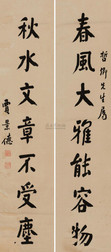 哲卿先生屬
春風大雅能容物
秋水文章不受塵
賈景德